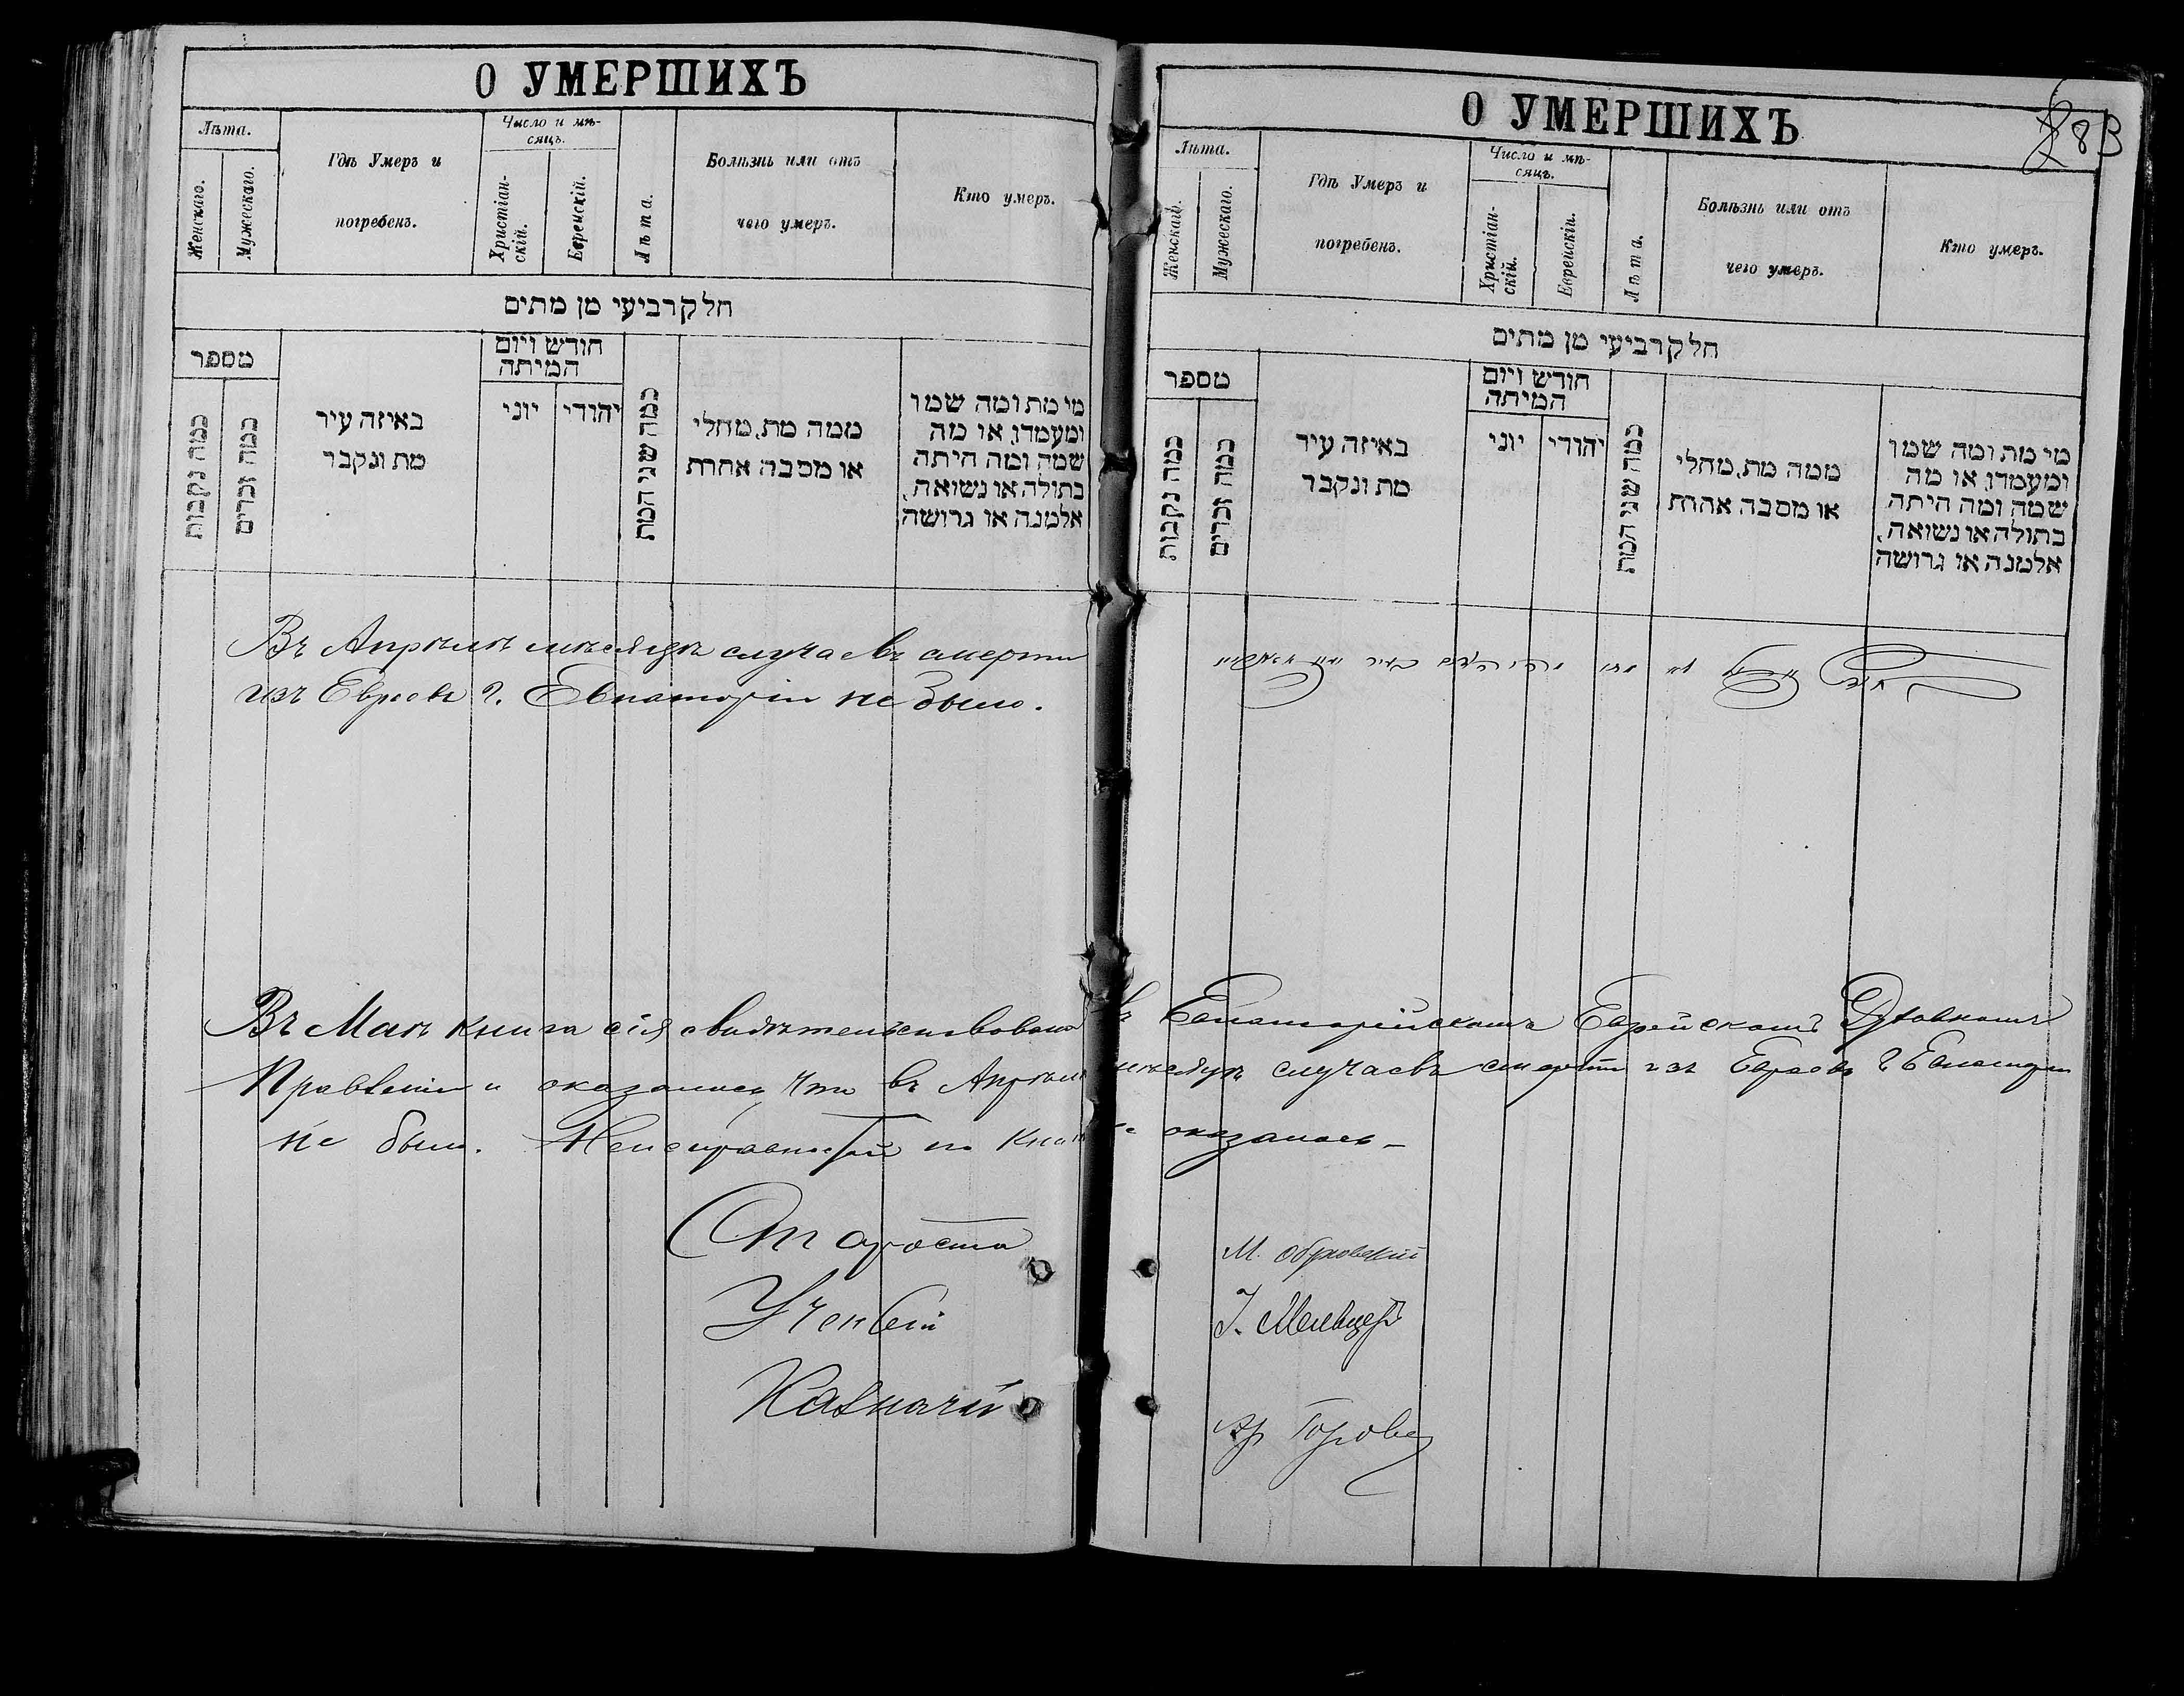 О УМЕРШИХЪ
Лѣта.
Женскаго.
Мужескаго.
Гдѣ Умеръ и
погребенъ.
Число и мѣ-
сяцъ.
Христіан-
скій.
Еврейскій.
Лѣта.
Болѣзнь или отъ
чего умеръ.
Кто умеръ.
חלק רביעי מן מתים
מספר
כמה נקבות
כמה זכרים
באיזה עיר
מת ונקבר
חודש ויום
המיתה
יוני
יהודי
כמה שני המת
ממה מת, מחלי
או מסבה אחרת
מי מת ומה שמו
ומעמדו, או מה
שמה ומה היתה
בתולה או נשואה,
אלמנה או גרושה
Въ Апрѣлѣ мѣсяцѣ случаевъ смерти
изъ Евреевъ г. Евпаторіи не было.
Въ Маѣ книга сія свидѣтельствована
Правленіи и оказалось что въ Апрѣлѣ
не было. Неисправностей по
Староста
Ученый
Казначей
О УМЕРШИХЪ
83
Лѣта.
Женскаго.
Мужескаго.
Гдѣ Умеръ и
погребенъ.
Число и мѣ-
сяцъ.
Христіан-
скій.
Еврейскій.
Лѣта.
Болѣзнь или отъ
чего умеръ.
Кто умеръ.
חלק רביעי מן מתים
מספר
כמה נקבות
כמה זכרים
באיזה עיר
מת ונקבר
חודש ויום
המיתה
יוני
יהודי
כמה שני המת
ממה מת, מחלי
או מסבה אחרת
מי מת ומה שמו
ומעמדו, או מה
שמה ומה היתה
בתולה או נשואה,
אלמנה או גרושה
въ Евпаторійскомъ Еврейскомъ Духовномъ
мѣсяцѣ случаевъ смерти изъ Евреевъ г Евпаторіи
не оказалось
М.
І.